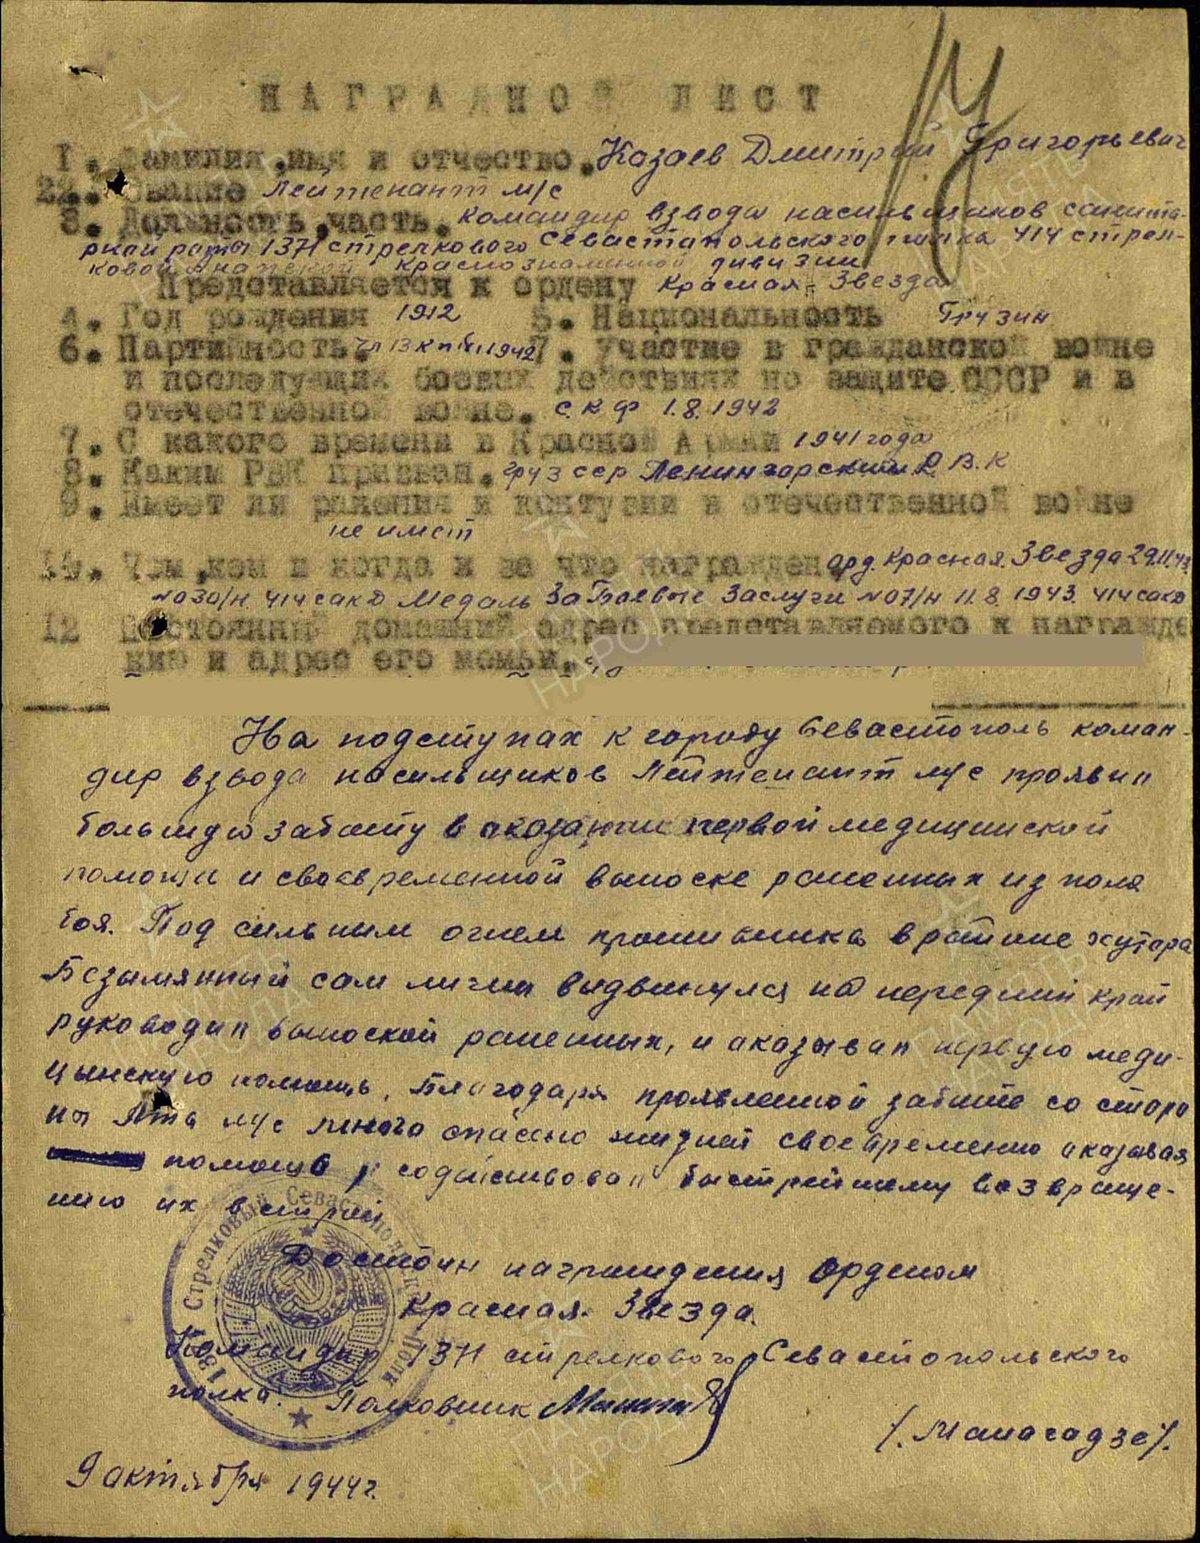 НАГРАДНОЙ ЛИСТ
1. Фамилия, имя и отчество. Казаев Дмитрий Григорьевич
2. Звание Лейтенант м/с
3. Должность, часть. Командир взвода насильщиков санита-
рной роты 1371 стрелкового Севастапольского полка 414 стрел-
ковой Анапской Краснознаменной дивизии
Представляется к ордену Красная-Звезда
4. Год рождения 1912 5. Национальность Грузин
6. Партийность. 1942 7. участие в гражданской войне
и последующих боевых действиях по защите СССР и в
отечественной войне. С.К.Ф 1.8.1942
7. С какого времени в Красной Армии 1941 года
8. Каким РВК призван. Груз ССР Ленингорским Р.В.К
9. Имеет ли ранения и контузии в отечественной войне
не имет
Чем, кем и когда и за что награжден орд. Красная. Звезда 29.11.43
№030/н. 414 сакд Медаль За Боевые Заслуги №07/н 11.8.1943. 414 сакд
12 Постоянный домашний адрес представляемого к награжде
нию и адрес его
На подступах к городу Севастополь коман-
дир взвода насильщиков Лейтенант м/с проявил
большую заботу в оказании первой медицинской
помощи и своевременной выноске раненных из поля
боя. Под сильным огнем противника в районе хутора
Безымянный сам лично выдвинулся на передний край
руководил выноской раненных, и аказывал первую меди-
цынскую помощь. Благодаря проявленной заботе со сторо
ны Л-та м/с много спасено жизней своевременно аказывая
помощь, содействовал быстрейшему возвраще-
нию их в строй
Достоин награждения Орденом
Красная-Звезда.
Командир 1371 стрелкового Севастопольского
полка: Полковник
/.Манагадзе/.
9 актября 1944 г.
1371 Стрелковый Севастопольский Полк
ПАМЯТЬ НАРОДА